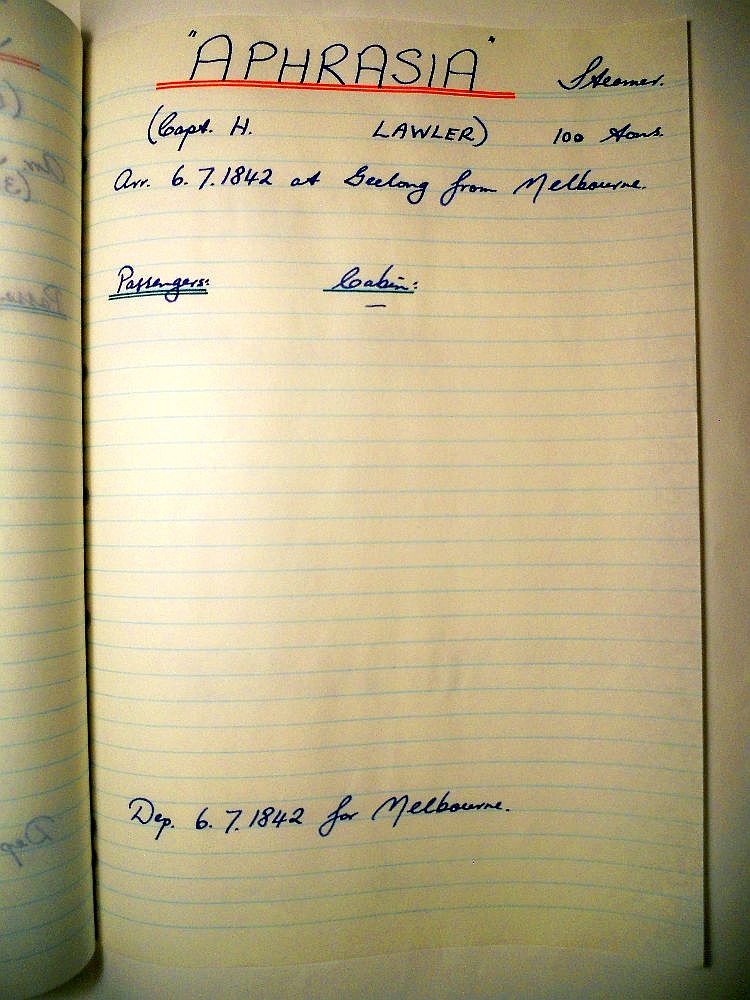 "APHRASIA" Steamer.
(Capt. H. LAWLER) 100 tons.
Arr. 6.7.1842 at Geelong from Melbourne.
Passengers: Cabin:
—
Dep. 6.7.1842 for Melbourne.
Dep